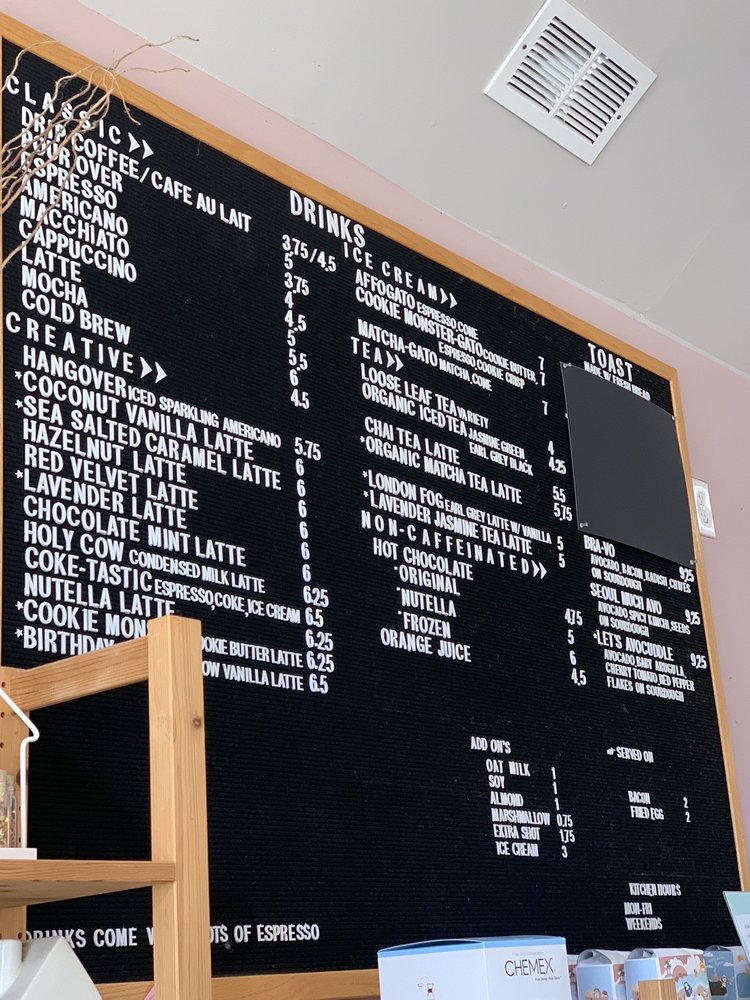 CLASSIC >>
DRIP COFFEE/CAFE AU LAIT 3.75/4.5
POUR OVER 5
ESPRESSO 3.75
AMERICANO 4
MACCHIATO 4.5
CAPPUCCINO 5
LATTE 5.5
MOCHA 6
COLD BREW 4.5
CREATIVE >>
HANGOVER ICED SPARKLING AMERICANO 5.75
*COCONUT VANILLA LATTE 6
*SEA SALTED CARAMEL LATTE 6
HAZELNUT LATTE 6
RED VELVET LATTE 6
*LAVENDER LATTE 6
CHOCOLATE MINT LATTE 6
HOLY COW CONDENSED MILK LATTE 6.25
COKE-TASTIC ESPRESSO,COKE,ICE CREAM 6.5
NUTELLA LATTE 6.25
*COOKIE MON OOKIE BUTTER LATTE 6.25
*BIRTHDAY OW VANILLA LATTE 6.5
DRINKS COME OTS OF ESPRESSO
DRINKS
ICE CREAM >>
AFFOGATO ESPRESSO,CONE 7
COOKIE MONSTER-GATO COOKIE BUTTER, 7
ESPRESSO,COOKIE CRISP
MATCHA-GATO MATCHA,CONE 7
TEA >>
LOOSE LEAF TEA VARIETY 4
ORGANIC ICED TEA JASMINE GREEN 4.25
EARL GREY BLACK
CHAI TEA LATTE 5.5
*ORGANIC MATCHA TEA LATTE 5.75
*LONDON FOG EARL GREY LATTE W/ VANILLA 5
*LAVENDER JASMINE TEA LATTE 5
NON-CAFFEINATED >>
HOT CHOCOLATE
*ORIGINAL 4.75
*NUTELLA 5
*FROZEN 6
ORANGE JUICE 4.5
ADD ON'S
OAT MILK 1
SOY 1
ALMOND 1
MARSHMALLOW 0.75
EXTRA SHOT 1.75
ICE CREAM 3
TOAST
MADE W/ FRESH BREAD
BRA-VO 9.25
AVOCADO,BACON,RADISH,CHIVES
ON SOURDOUGH
SEOUL MUCH AVO 9.25
AVOCADO,SPICY KIMCHI,SEEDS
ON SOURDOUGH
*LET'S AVOCUDDLE 9.25
AVOCADO,BABY ARUGULA,
CHERRY TOMATO,RED PEPPER
FLAKES ON SOURDOUGH
SERVED ON
BACON 2
FRIED EGG 2
KITCHEN HOURS
MON-FRI
WEEKENDS
CHEMEX